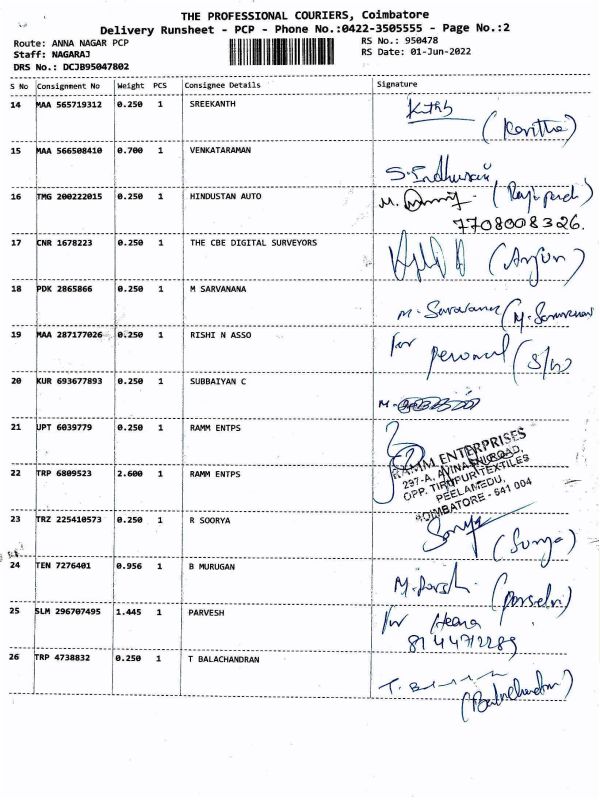 THE PROFESSIONAL COURIERS, Coimbatore
Delivery Runsheet - PCP - Phone No.:0422-3505555 - Page No.:2
Route: ANNA NAGAR PCP
RS No.: 950478
Staff: NAGARAJ
RS Date: 01-Jun-2022
DRS No.: DCJB95047802
S No Consignment No Weight PCS Consignee Details Signature
14 MAA 565719312 0.250 1 SREEKANTH
(Kavitha)
15 MAA 566508410 0.700 1 VENKATARAMAN
16 TMG 200222015 0.250 1 HINDUSTAN AUTO
7708008326.
17 CNR 1678223 0.250 1 THE CBE DIGITAL SURVEYORS
(Arjun)
18 PDK 2865866 0.250 1 M SARVANANA
M. Saravana
19 MAA 287177026 0.250 1 RISHI N ASSO
for
20 KUR 693677893 0.250 1 SUBBAIYAN C
21 UPT 6039779 0.250 1 RAMM ENTPS
RAMM ENTERPRISES
297-A, AVINASHI ROAD,
OPP. TIRUPUR TEXTILES
PEELAMEDU,
COIMBATORE - 641 004
22 TRP 6809523 2.600 1 RAMM ENTPS
23 TRZ 225410573 0.250 1 R SOORYA
(Surya)
24 TEN 7276401 0.956 1 B MURUGAN
25 SLM 296707495 1.445 1 PARVESH
for Heena
8144712289
26 TRP 4738832 0.250 1 T BALACHANDRAN
(Balachandran)